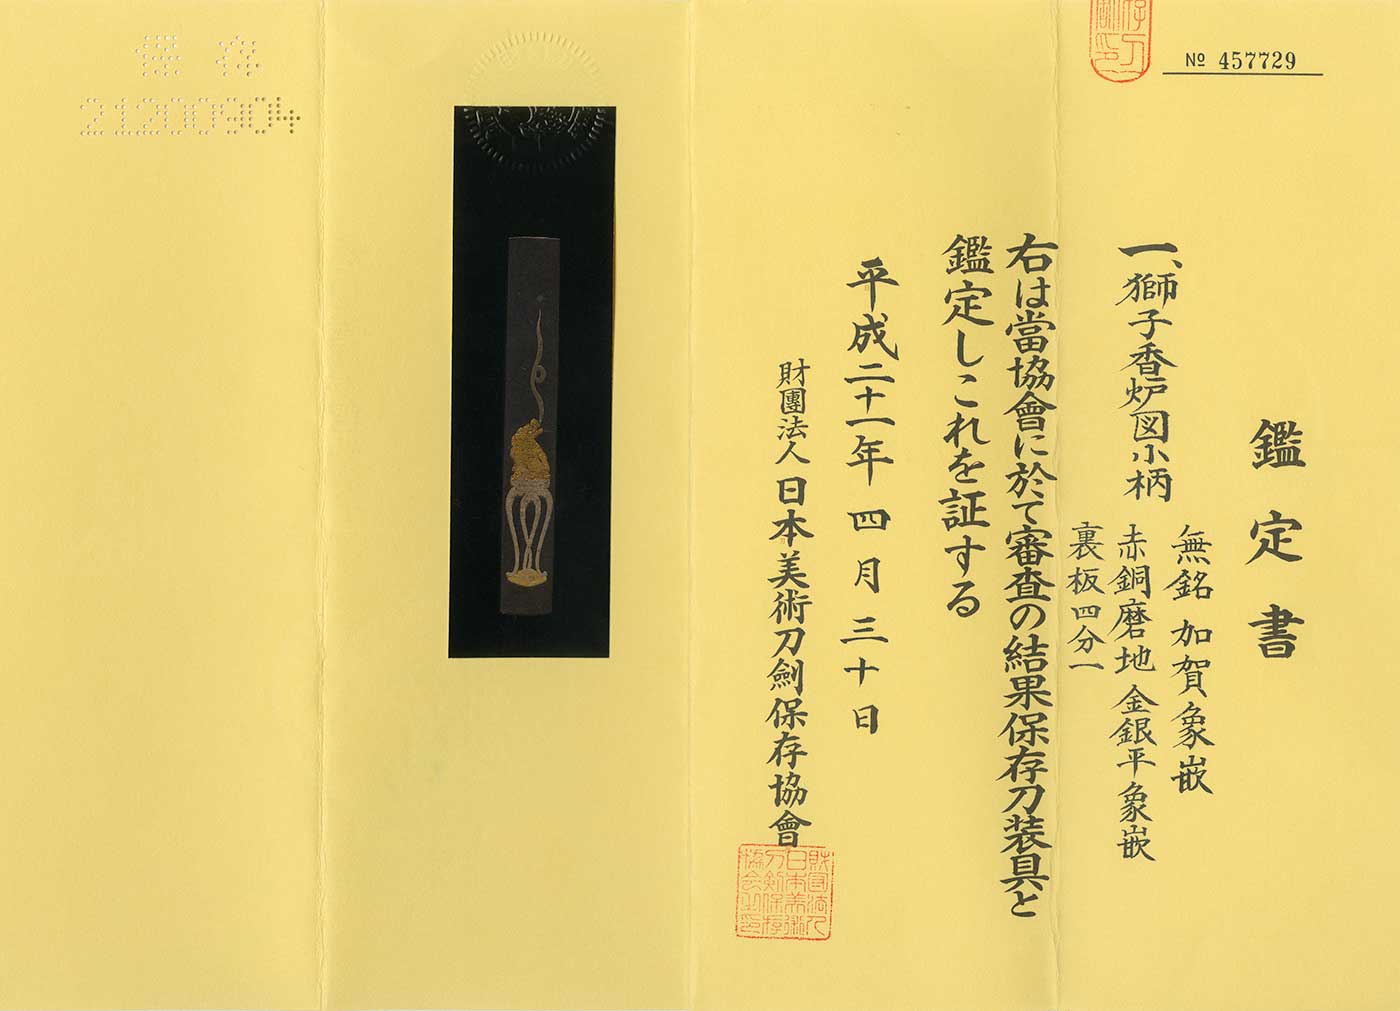 № 457729
鑑定書
一、獅子香炉図小柄
無銘 加賀象嵌
赤銅磨地 金銀平象嵌
裏板四分一
右は當協會に於て審査の結果保存刀装具と
鑑定しこれを証する
平成二十一年四月三十日
財團法人日本美術刀劍保存協會
保存
21200904